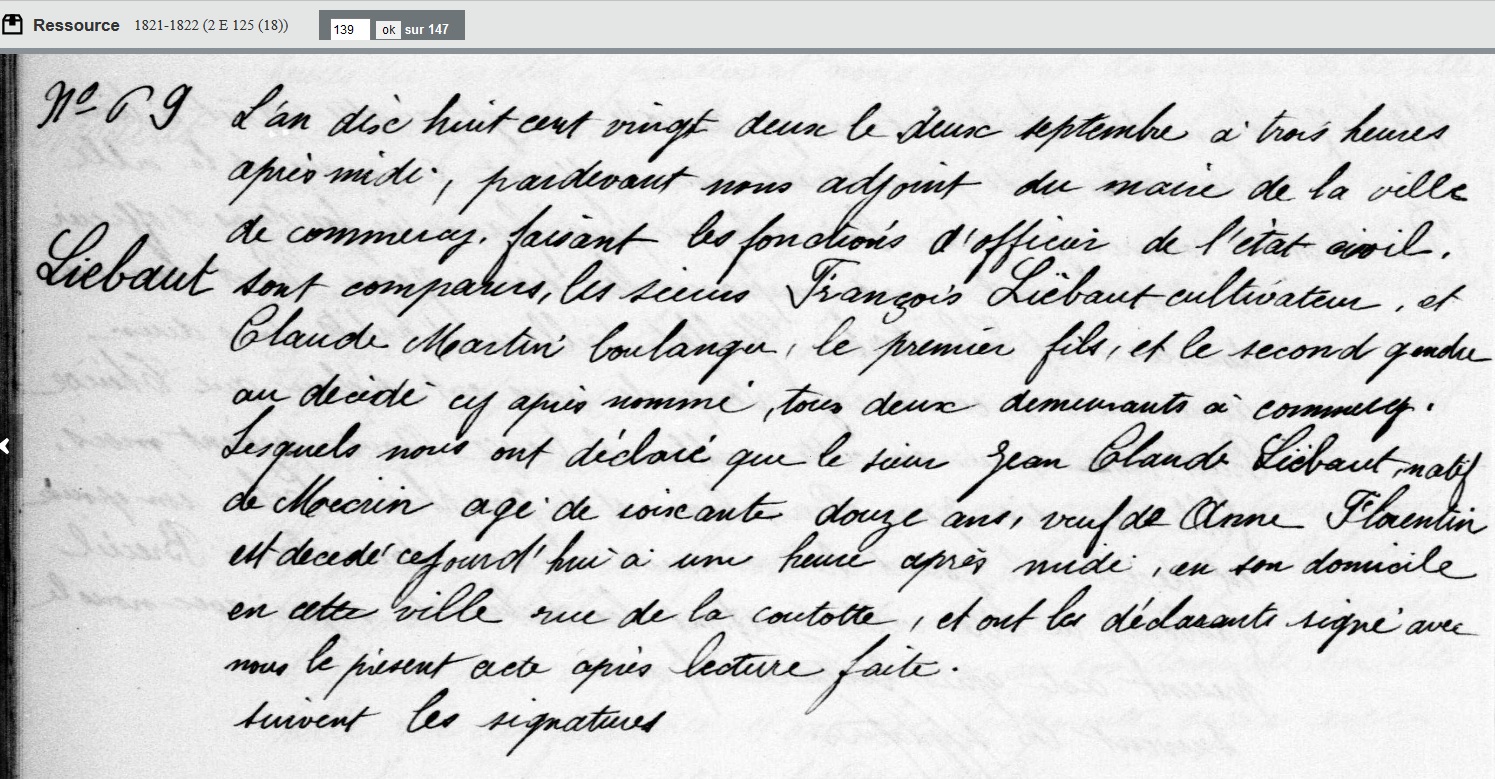 Ressource 1821-1822 (2 E 125 (18)) 139 ok sur 147
N° 69
L'an dix huit cent vingt deux le deux septembre à trois heures
après midi, pardevant nous adjoint du maire de la ville
de commercy, faisant les fonctions d'officier de l'état civil.
Liebaut
sont comparus, les sieurs François Liébaut cultivateur, et
Claude Martin boulanger, le premier fils, et le second gendre
au décédé cy après nommé, tous deux demeurants à commercy.
Lesquels nous ont déclaré que le sieur Jean Claude Liébaut, natif
de Mécrin agé de soixante douze ans, veuf de Anne Florentin
est decedé cejourd'hui à une heure après midi, en son domicile
en cette ville rue de la coutotte, et ont les déclarants signé avec
nous le présent acte après lecture faite.
suivent les signatures